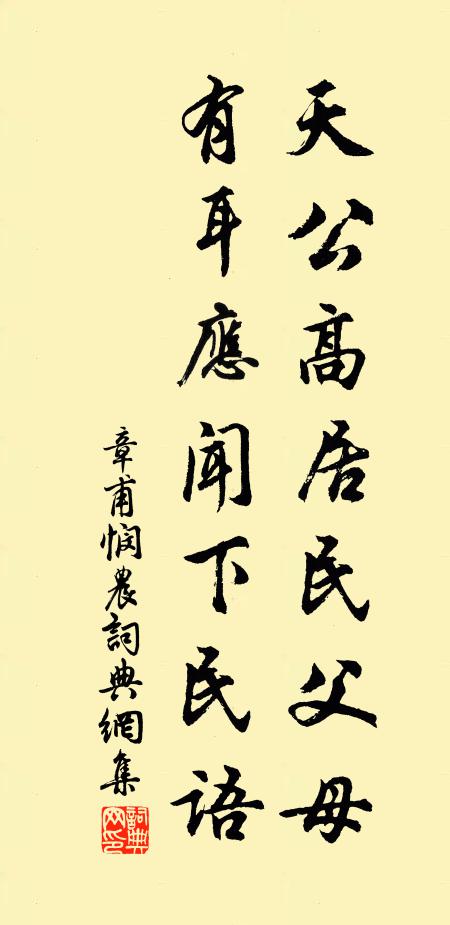 天公高居民父母
有耳應聞下民語
章甫憫農詞典網集
詞典網印